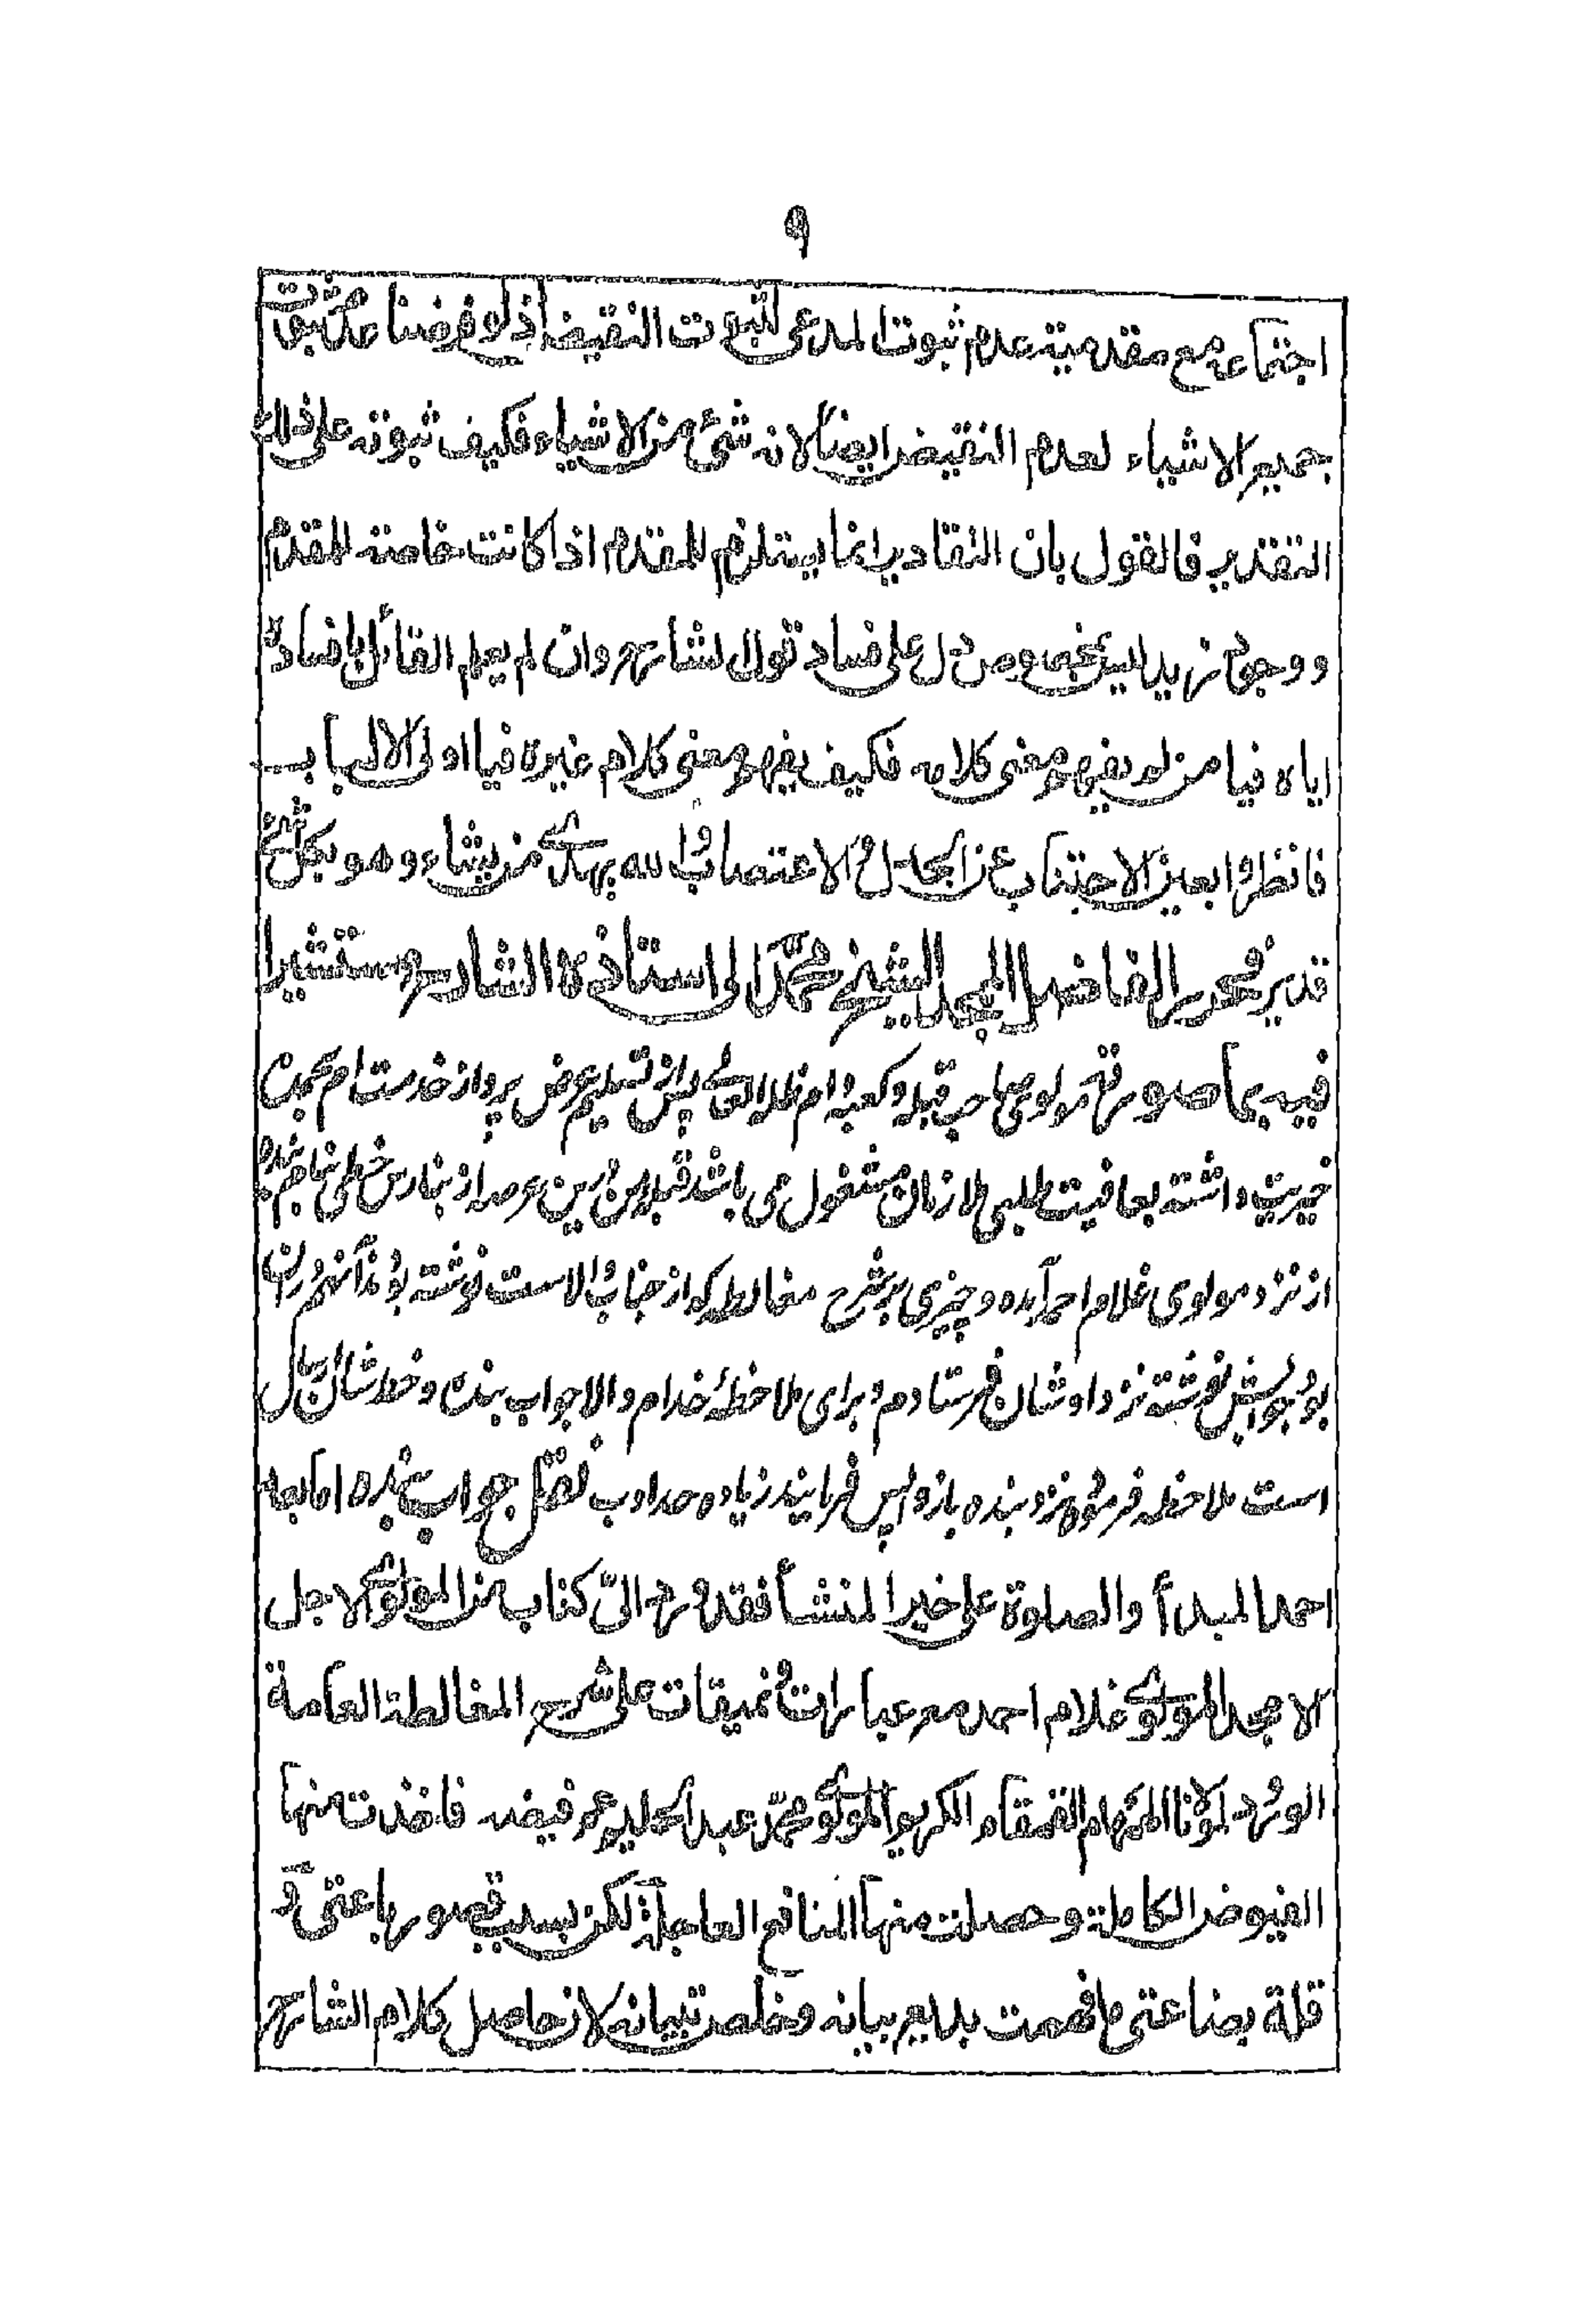 ۹
اجتماعه مع مقدمية عدم ثبوت المدعى لثبوت النقيض اذ لو فرضنا عدم ثبوت
جميع الاشياء لعدم النقيض ايضا لانه شئ من الاشياء فكيف ثبوته على ذلك
التقدير فالقول بان التقادير انما يستلزم للمقدم اذا كانت خاصته للمقدم
ووجود زيد ليس دل على فساد قول الشارح وان لم يعلم القائل بافساده
اياه فيا من لم يفهم معنى كلامه فكيف يفهم معنى كلام غيره فيا اولى الالباب
فانظروا بعين الاجتناب عن الجدل والاعتصاب والله يهدى من يشاء وهو بكل شئ
قدير تحرير الفاضل المبجل الشيخ محمد الى استاذه الشارح مستشيرا
فيه بما صورته مولوى صاحب قبله وكعبه دام ظله العالى پس از تسليم عرض پرداز خدمت ام بحمدن
خيريت داشته بعافيت طلبى ملازمان مشغول مى باشد قبله من درين عرصه از بنارس خطى بنام
از نزد مولوى غلام احمد آمده وچيزى بر شرح مغالطه كه از جناب والاست نوشته بودند آنهم دران
بود جوابش نوشته نزد اوشان فرستادم و براى ملاحظۀ خدام والا جواب بنده وخط شان
است ملاحظه فرموده نزد بنده باز واپس فرمايند زياده حد ادب نقل جواب بنده اما بعد
احمد المبدأ والصلوة على خير المنشأ فقد ورد الىّ كتاب من المولوى الاجل
الامجد المولوى غلام احمد مع عبارات ونميقات على شرح المغالطة العامة
الورود لمولانا القمقام الكريم المولوى محمد عبد الحليم عم فيضه فاخذت منها
الفيوض الكاملة وحصلت منها المنافع العاجلة لكن بسبب قصور باعتى و
قلة بضاعتى ما فهمت بديع بيانه وخلص تبيانه لان حاصل كلام الشارح